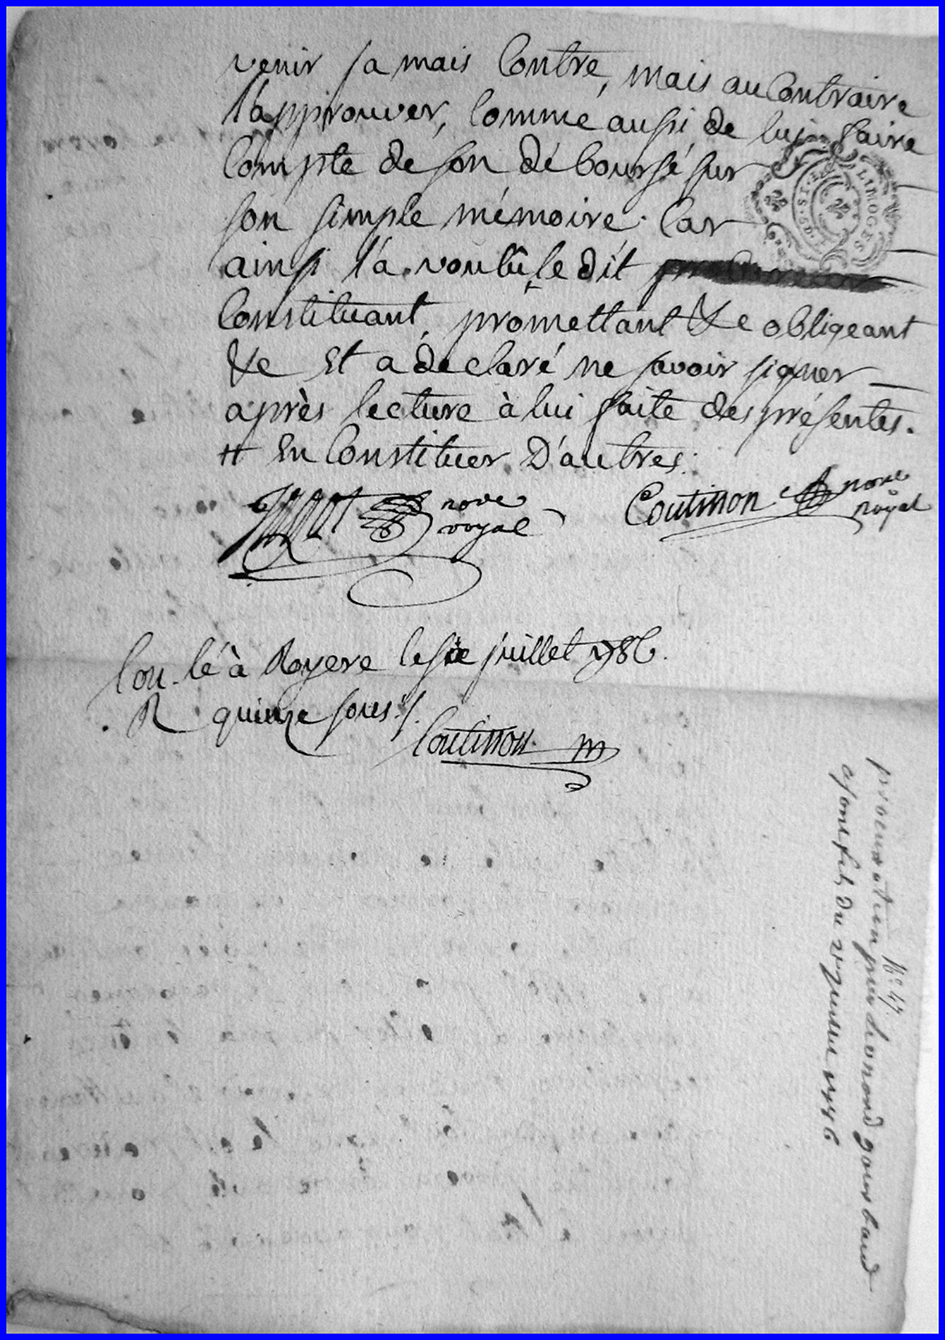 venir jamais Contre, mais au Contraire
l'approuver, Comme aussi de luy faire
Compte de son déboursé sur
son simple mémoire. Car
ainsi l'a voulu le dit
Constituant, promettant &c obligeant
&c Et a declaré ne savoir signer
après lecture à lui faite des présentes.
# En Constituer D'autres.
nore
royal
Coutisson nore
royal
LIMOGES
Con.lé à Royere le six juillet 1786.
R quinze sous
Coutisson
No. 47
procuration par Léonard
a son fils du juillet 1786